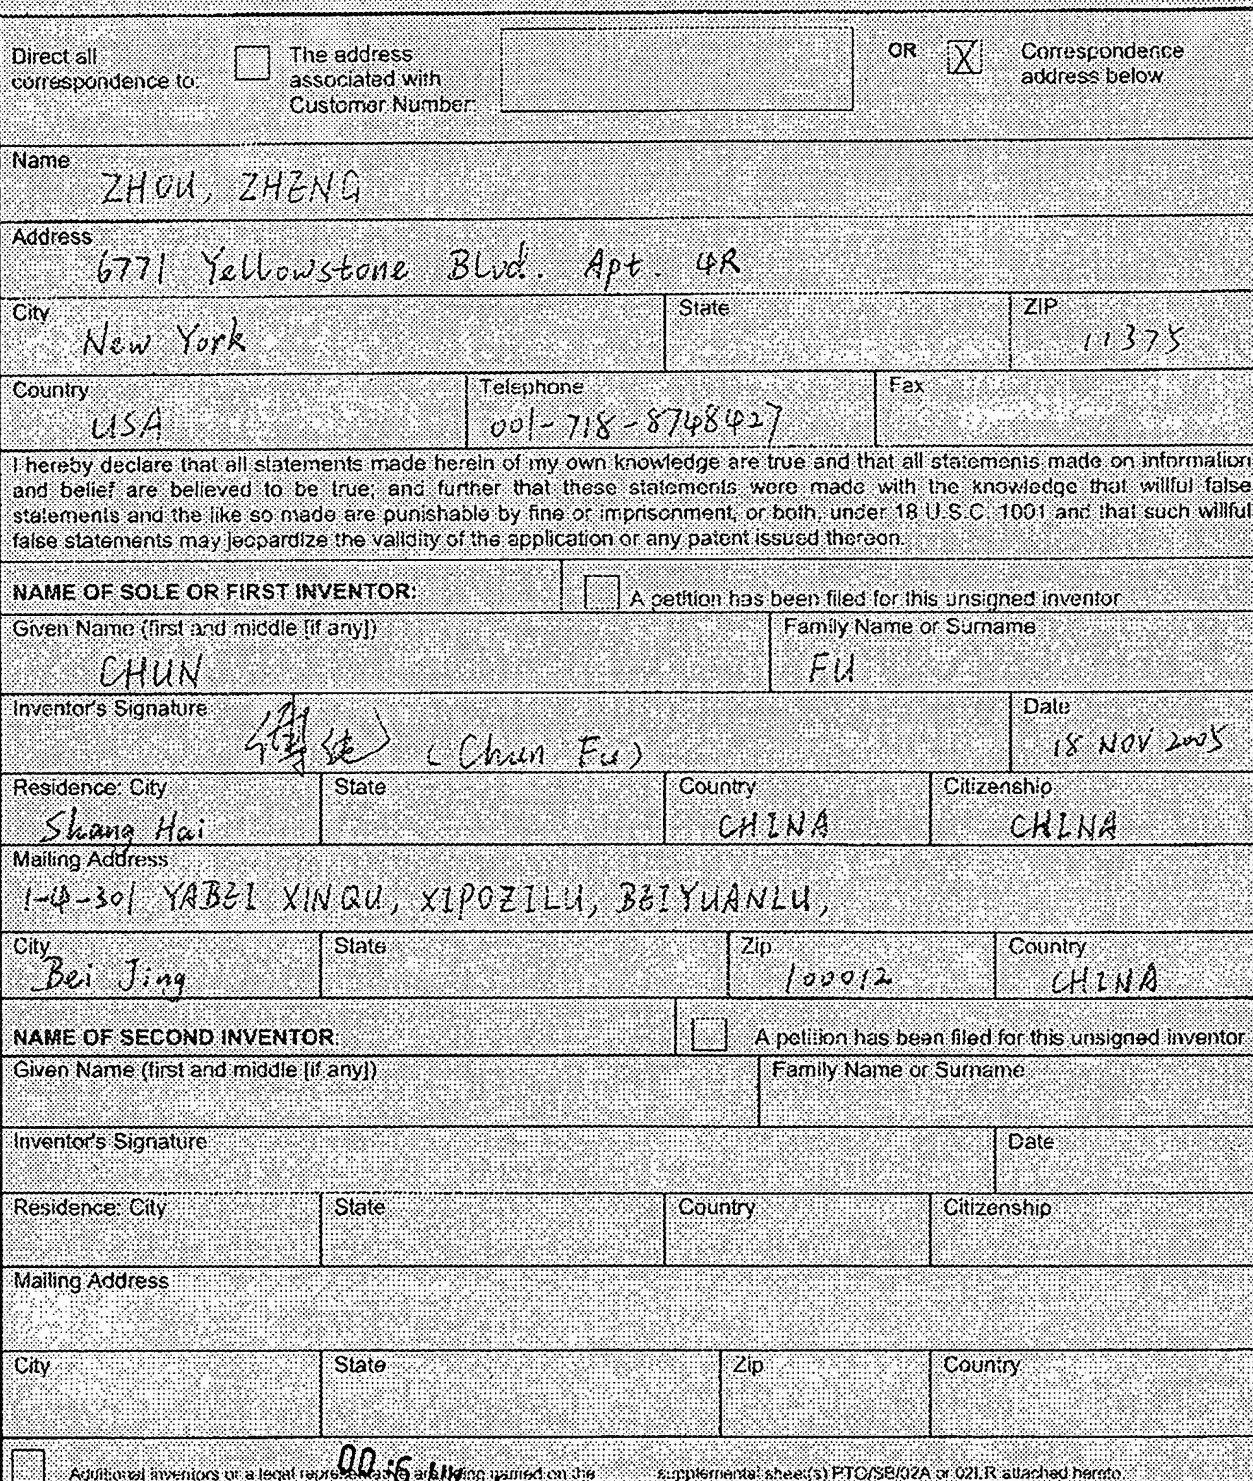 Direct all correspondence to:
The address associated with Customer Number:
OR
X
Correspondence address below
Name
ZHOU, ZHENG
Address
6771 Yellowstone Blvd. Apt. 4R
City
New York
State
ZIP
11375
Country
USA
Telephone
001-718-8748427
Fax
I hereby declare that all statements made herein of my own knowledge are true and that all statements made on information
and belief are believed to be true; and further that these statements were made with the knowledge that willful false
statements and the like so made are punishable by fine or imprisonment, or both, under 18 U.S.C. 1001 and that such willful
false statements may jeopardize the validity of the application or any patent issued thereon.
NAME OF SOLE OR FIRST INVENTOR:
A petition has been filed for this unsigned inventor
Given Name (first and middle [if any])
CHUN
Family Name or Surname
FU
Inventor's Signature
傅纯 (Chun Fu)
Date
18 NOV 2005
Residence: City
Shang Hai
State
Country
CHINA
Citizenship
CHINA
Mailing Address
1-4-301 YABEI XINQU, XIPOZILU, BEIYUANLU,
City
Bei Jing
State
Zip
100012
Country
CHINA
NAME OF SECOND INVENTOR:
A petition has been filed for this unsigned inventor
Given Name (first and middle [if any])
Family Name or Surname
Inventor's Signature
Date
Residence: City
State
Country
Citizenship
Mailing Address
City
State
Zip
Country
Additional inventors or a legal named on the supplemental sheet(s) PTO/SB/02A or 02LR attached hereto